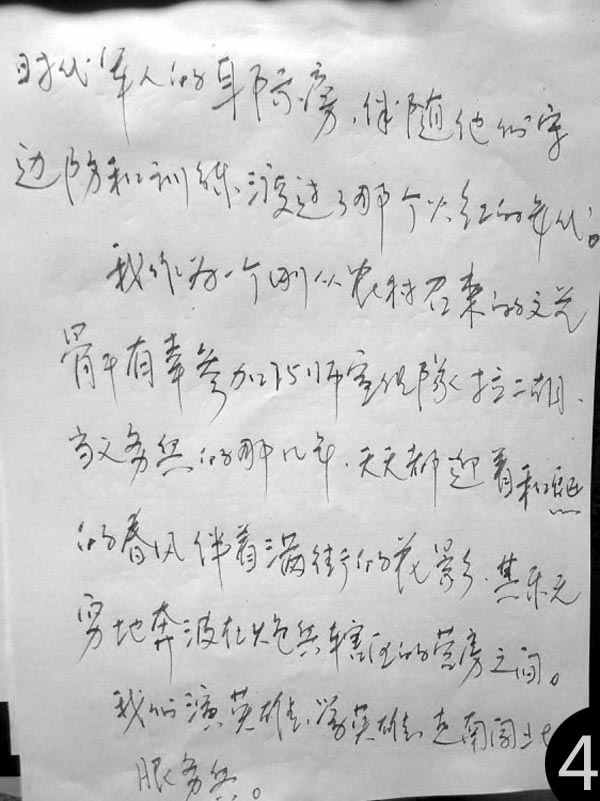 时代军人的耳际旁,伴随他们守
边防和训练,渡过了那个火红的年代。
我作为一个刚从农村召来的文艺
骨干有幸参加15师宣传队拉二胡.
当文务兵的那几年,天天都迎着和煦
的春风伴着满街的花影,其乐无
穷地奔波在炮兵辖区的营房之间。
我们演英雄,学英雄,走南闯北
服务兵。
4